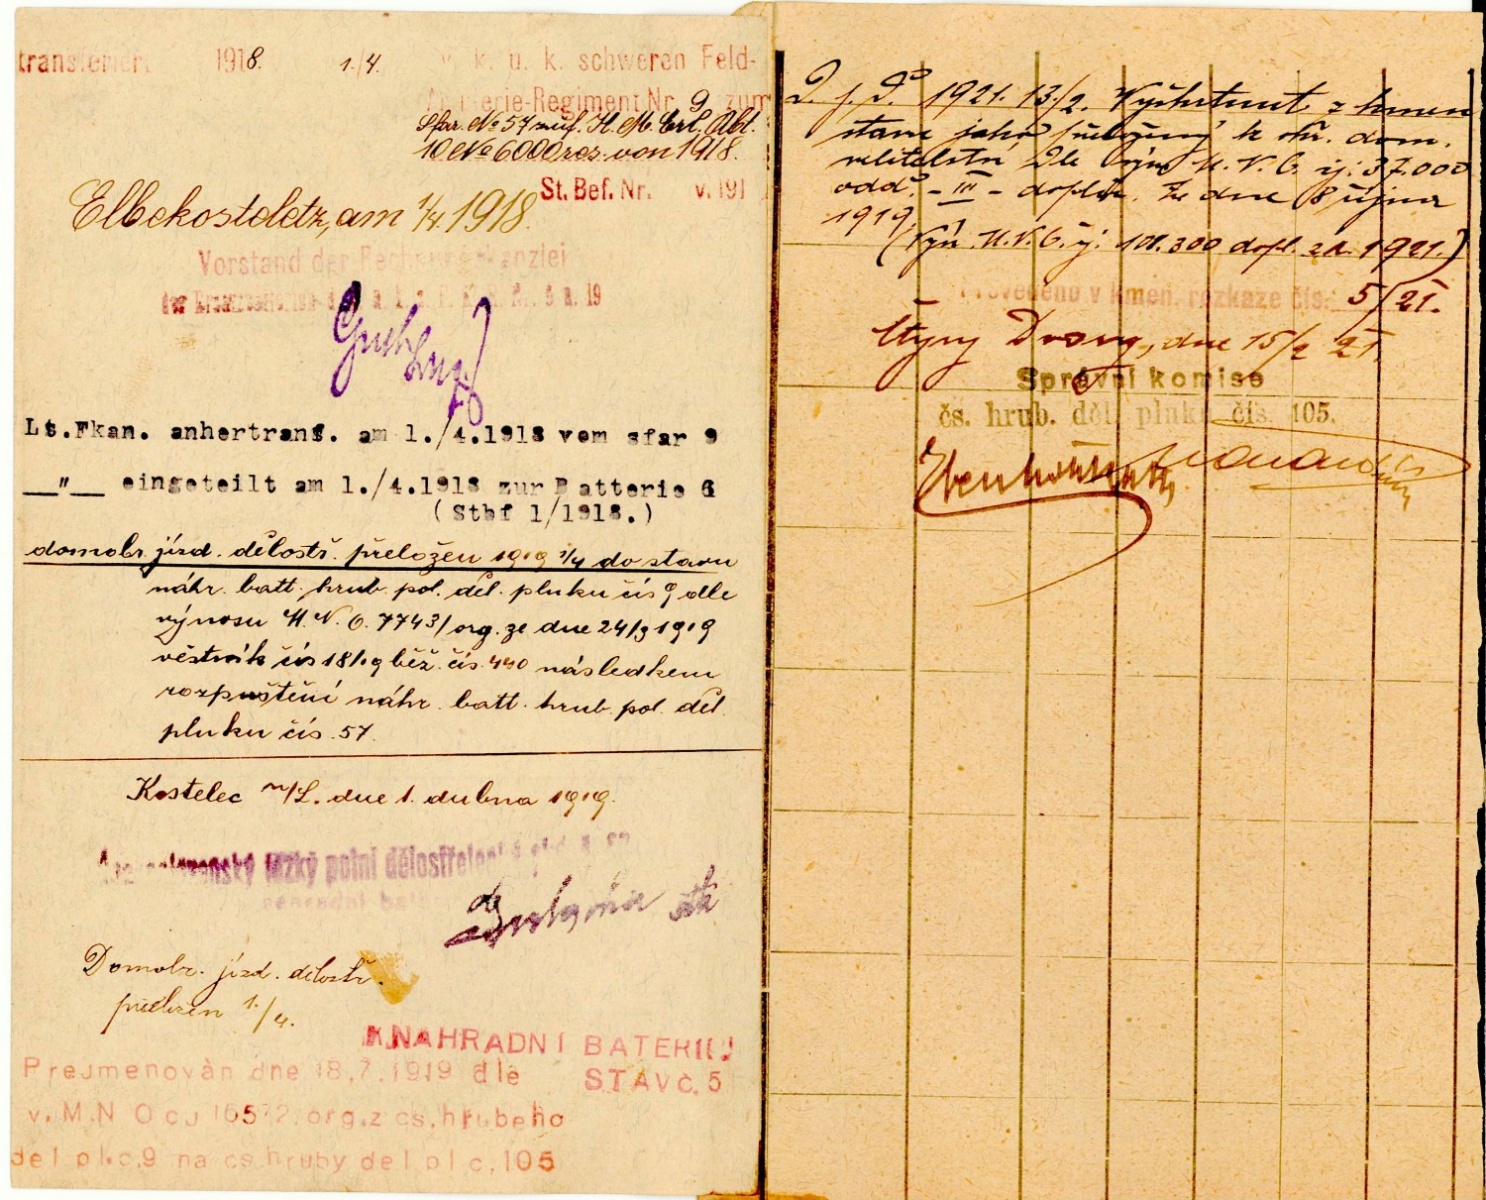 transferiert 1918. 1./4. v. k. u. k. schweren Feld-
Artillerie-Regiment Nr. 9 zum
Sfar. No 57 zuf. K. M. Erl. Abt.
10 No 6000 res. von 1918.
St. Bef. Nr. v. 191
Elbekosteletz, am 1/4. 1918.
Vorstand der Rechnungskanzlei
a. 19
Lt. Fkan. anhertrans. am 1./4.1918 vom sfar 9
—"— eingeteilt am 1./4.1918 zur Batterie 6
(Stbf 1/1918.)
domobr. jízd. dělostř. přeložen 1919 1/4 do stavu
náhr. batt. hrub. pol. děl. pluku čís 9 dle
výnosu M. N. O. 7743/org. ze dne 24/3 1919
věstník čís 18/19 běž. čís. 440 následkem
rozpuštění náhr. batt. hrub. pol. děl.
pluku čís. 57.
Kostelec n/L. dne 1. dubna 1919.
těžký polní dělostřelecký
náhradní
Domobr. jízd. dělostř.
přeložen 1./4.
K NAHRADNI BATERII
STAV č. 5
Prejmenovàn dne 18.7.1919 dle
v. M.N O cj 16572.org.z cs.hrubeho
del pl.c.9 na cs hruby del pl c. 105
D. j. d. 1921. 13./2. Vyškrtnut z kmen
stavu jako přeložený k okr. dom.
velitelství dle výn M. N. O. čj: 37.000
odd. - III - doplň. ze dne 8 října
1919.
(Výn. M. N. O. čj: 101.300 dopl. z r. 1921.)
Provedeno v kmen. rozkaze čís: 5/21.
Čtyry Dvory, dne 15/2 21.
Správní komise
čs. hrub. děl. pluku čís. 105.